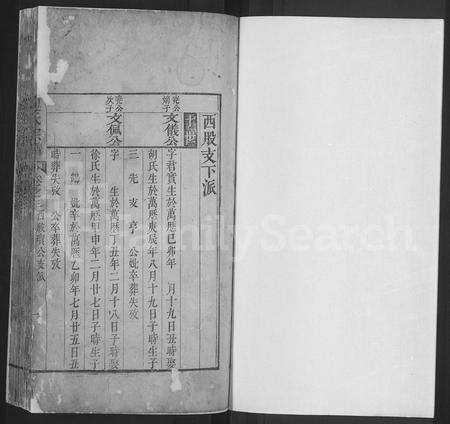 西股支下派
堯公
嗣子
文儀公字君實生於萬歷己卯年 月十九日丑時娶
胡氏生於萬歷庚辰年八月十九日子時生子
三 先 支 亨 公妣卒葬失攷
堯公
次子
文佩公字 生於萬歷丁丑年二月十八日子時娶
徐氏生於萬歷甲申年二月廿七日子時生子
一 妣卒於萬歷乙卯年七月廿五日丑
時葬失攷 公卒葬失攷
FamilySearch